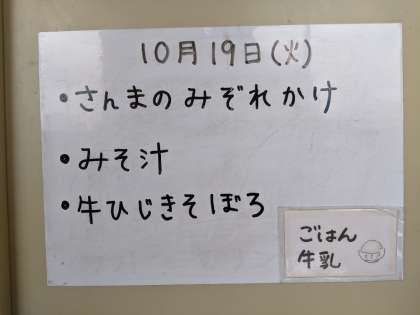 10月19日(火)
・さんまのみぞれかけ
・みそ汁
・牛ひじきそぼろ
ごはん
牛乳